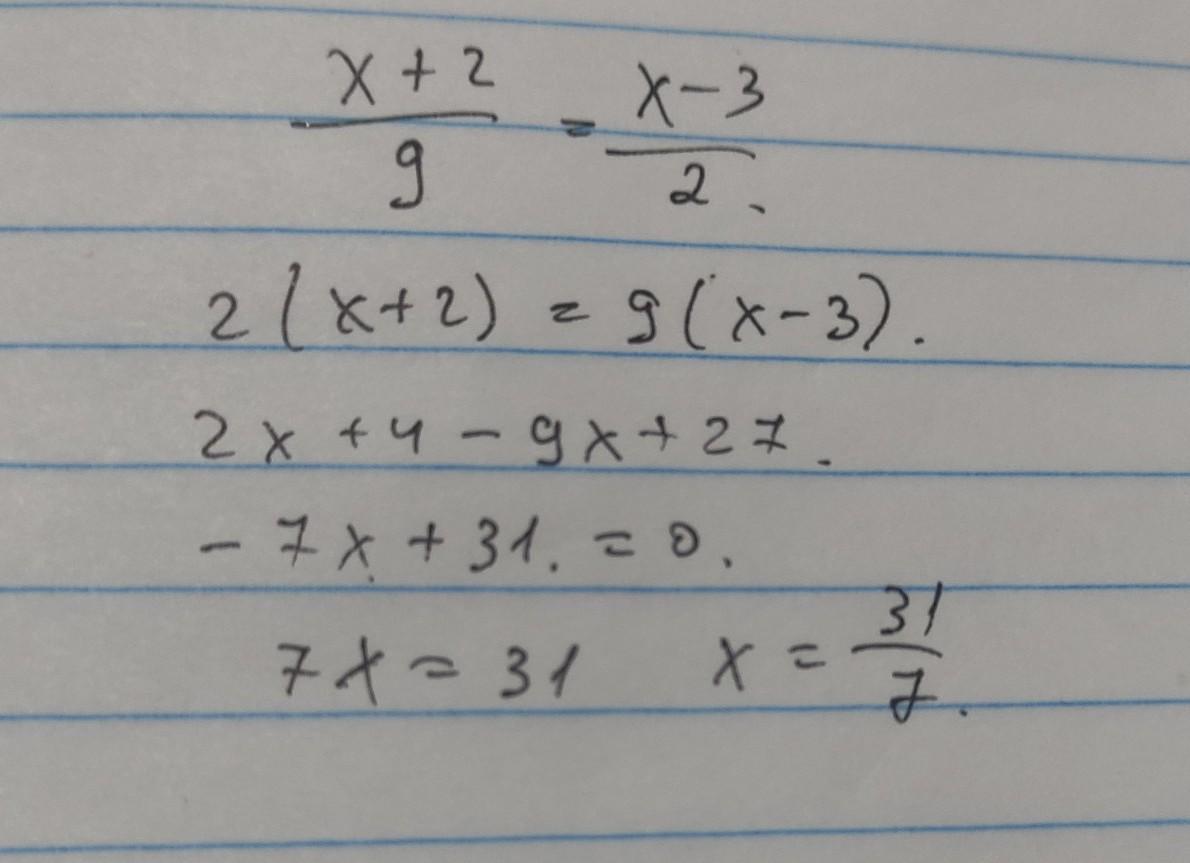 x + 2 / 9 = x - 3 / 2.
2 ( x + 2 ) = 9 ( x - 3 ).
2x + 4 - 9x + 27.
- 7x + 31. = 0.
7x = 31 x = 31 / 7.